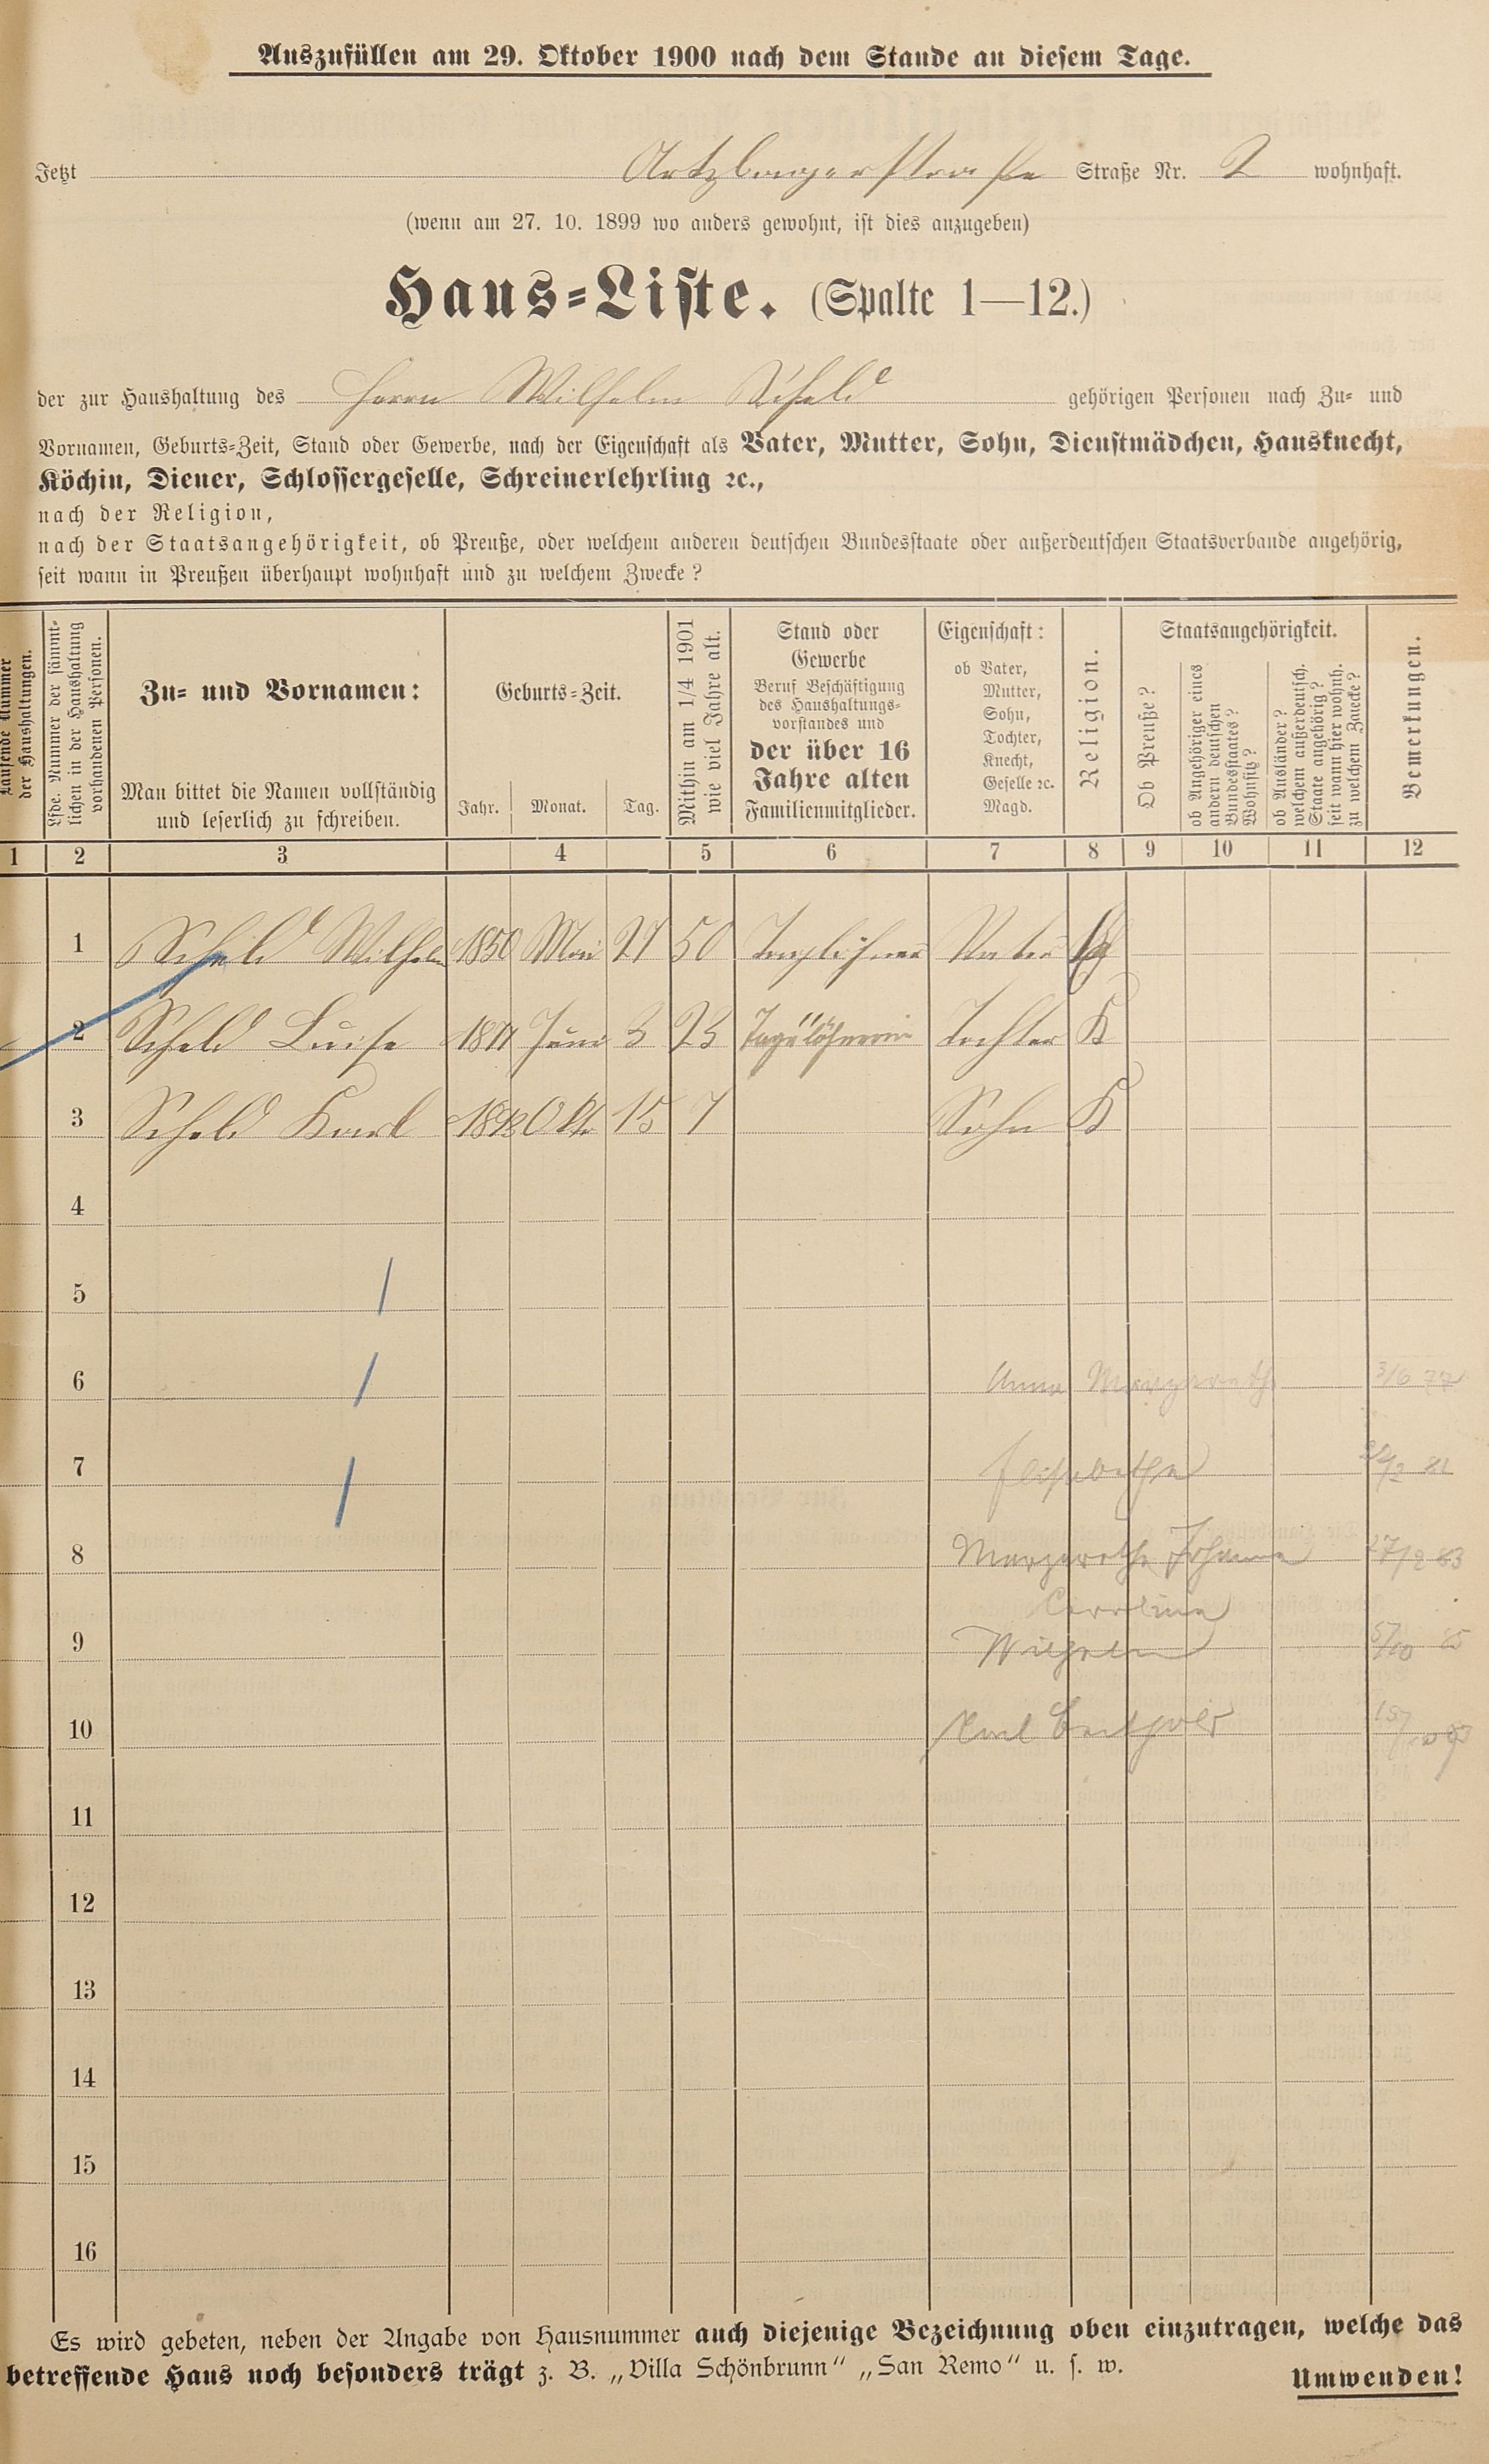 Auszufüllen am 29. Oktober 1900 nach dem Stande an diesem Tage.
Jetzt Straße Nr. 2 wohnhaft.
(wenn am 27. 10. 1899 wo anders gewohnt, ist dies anzugeben)
Haus-Liste. (Spalte 1—12.)
der zur Haushaltung des Herrn Wilhelm Scheld gehörigen Personen nach Zu- und
Vornamen, Geburts-Zeit, Stand oder Gewerbe, nach der Eigenschaft als Vater, Mutter, Sohn, Dienstmädchen, Hausknecht,
Köchin, Diener, Schlossergeselle, Schreinerlehrling ꝛc.,
nach der Religion,
nach der Staatsangehörigkeit, ob Preuße, oder welchem anderen deutschen Bundesstaate oder außerdeutschen Staatsverbande angehörig,
seit wann in Preußen überhaupt wohnhaft und zu welchem Zwecke?
Laufende Nummer
der Haushaltungen.
Lfde. Nummer der sämmt-
lichen in der Haushaltung
vorhandenen Personen.
Zu- und Vornamen:
Man bittet die Namen vollständig
und leserlich zu schreiben.
Geburts-Zeit.
Jahr. Monat. Tag.
Mithin am 1/4 1901
wie viel Jahre alt.
Stand oder
Gewerbe
Beruf Beschäftigung
des Haushaltungs-
vorstandes und
der über 16
Jahre alten
Familienmitglieder.
Eigenschaft:
ob Vater,
Mutter,
Sohn,
Tochter,
Knecht,
Geselle ꝛc.
Magd.
Religion.
Staatsangehörigkeit.
Ob Preuße?
ob Angehöriger eines
andern deutschen
Bundesstaates?
Wohnsitz?
ob Ausländer?
welchem außerdeutsch.
Staate angehörig?
seit wann hier wohnh.
zu welchem Zwecke?
Bemerkungen.
1 2 3 4 5 6 7 8 9 10 11 12
1 Scheld Wilhelm 1850 Mai 27 50 Taglöhner Vater
2 Scheld Luise Juni 3 23 Tagelöhnerin Tochter K
3 Scheld Karl Okt 15 7 Sohn K
4
5
6 Anna Margarethe 3/6 77
7 Elisabetha 81
8 Margarethe Johanna 83
Carolina
9 Wilhelm 5/10 85
10 Karl Berthold
11
12
13
14
15
16
Es wird gebeten, neben der Angabe von Hausnummer auch diejenige Bezeichnung oben einzutragen, welche das
betreffende Haus noch besonders trägt z. B. „Villa Schönbrunn“ „San Remo“ u. s. w.
Umwenden!